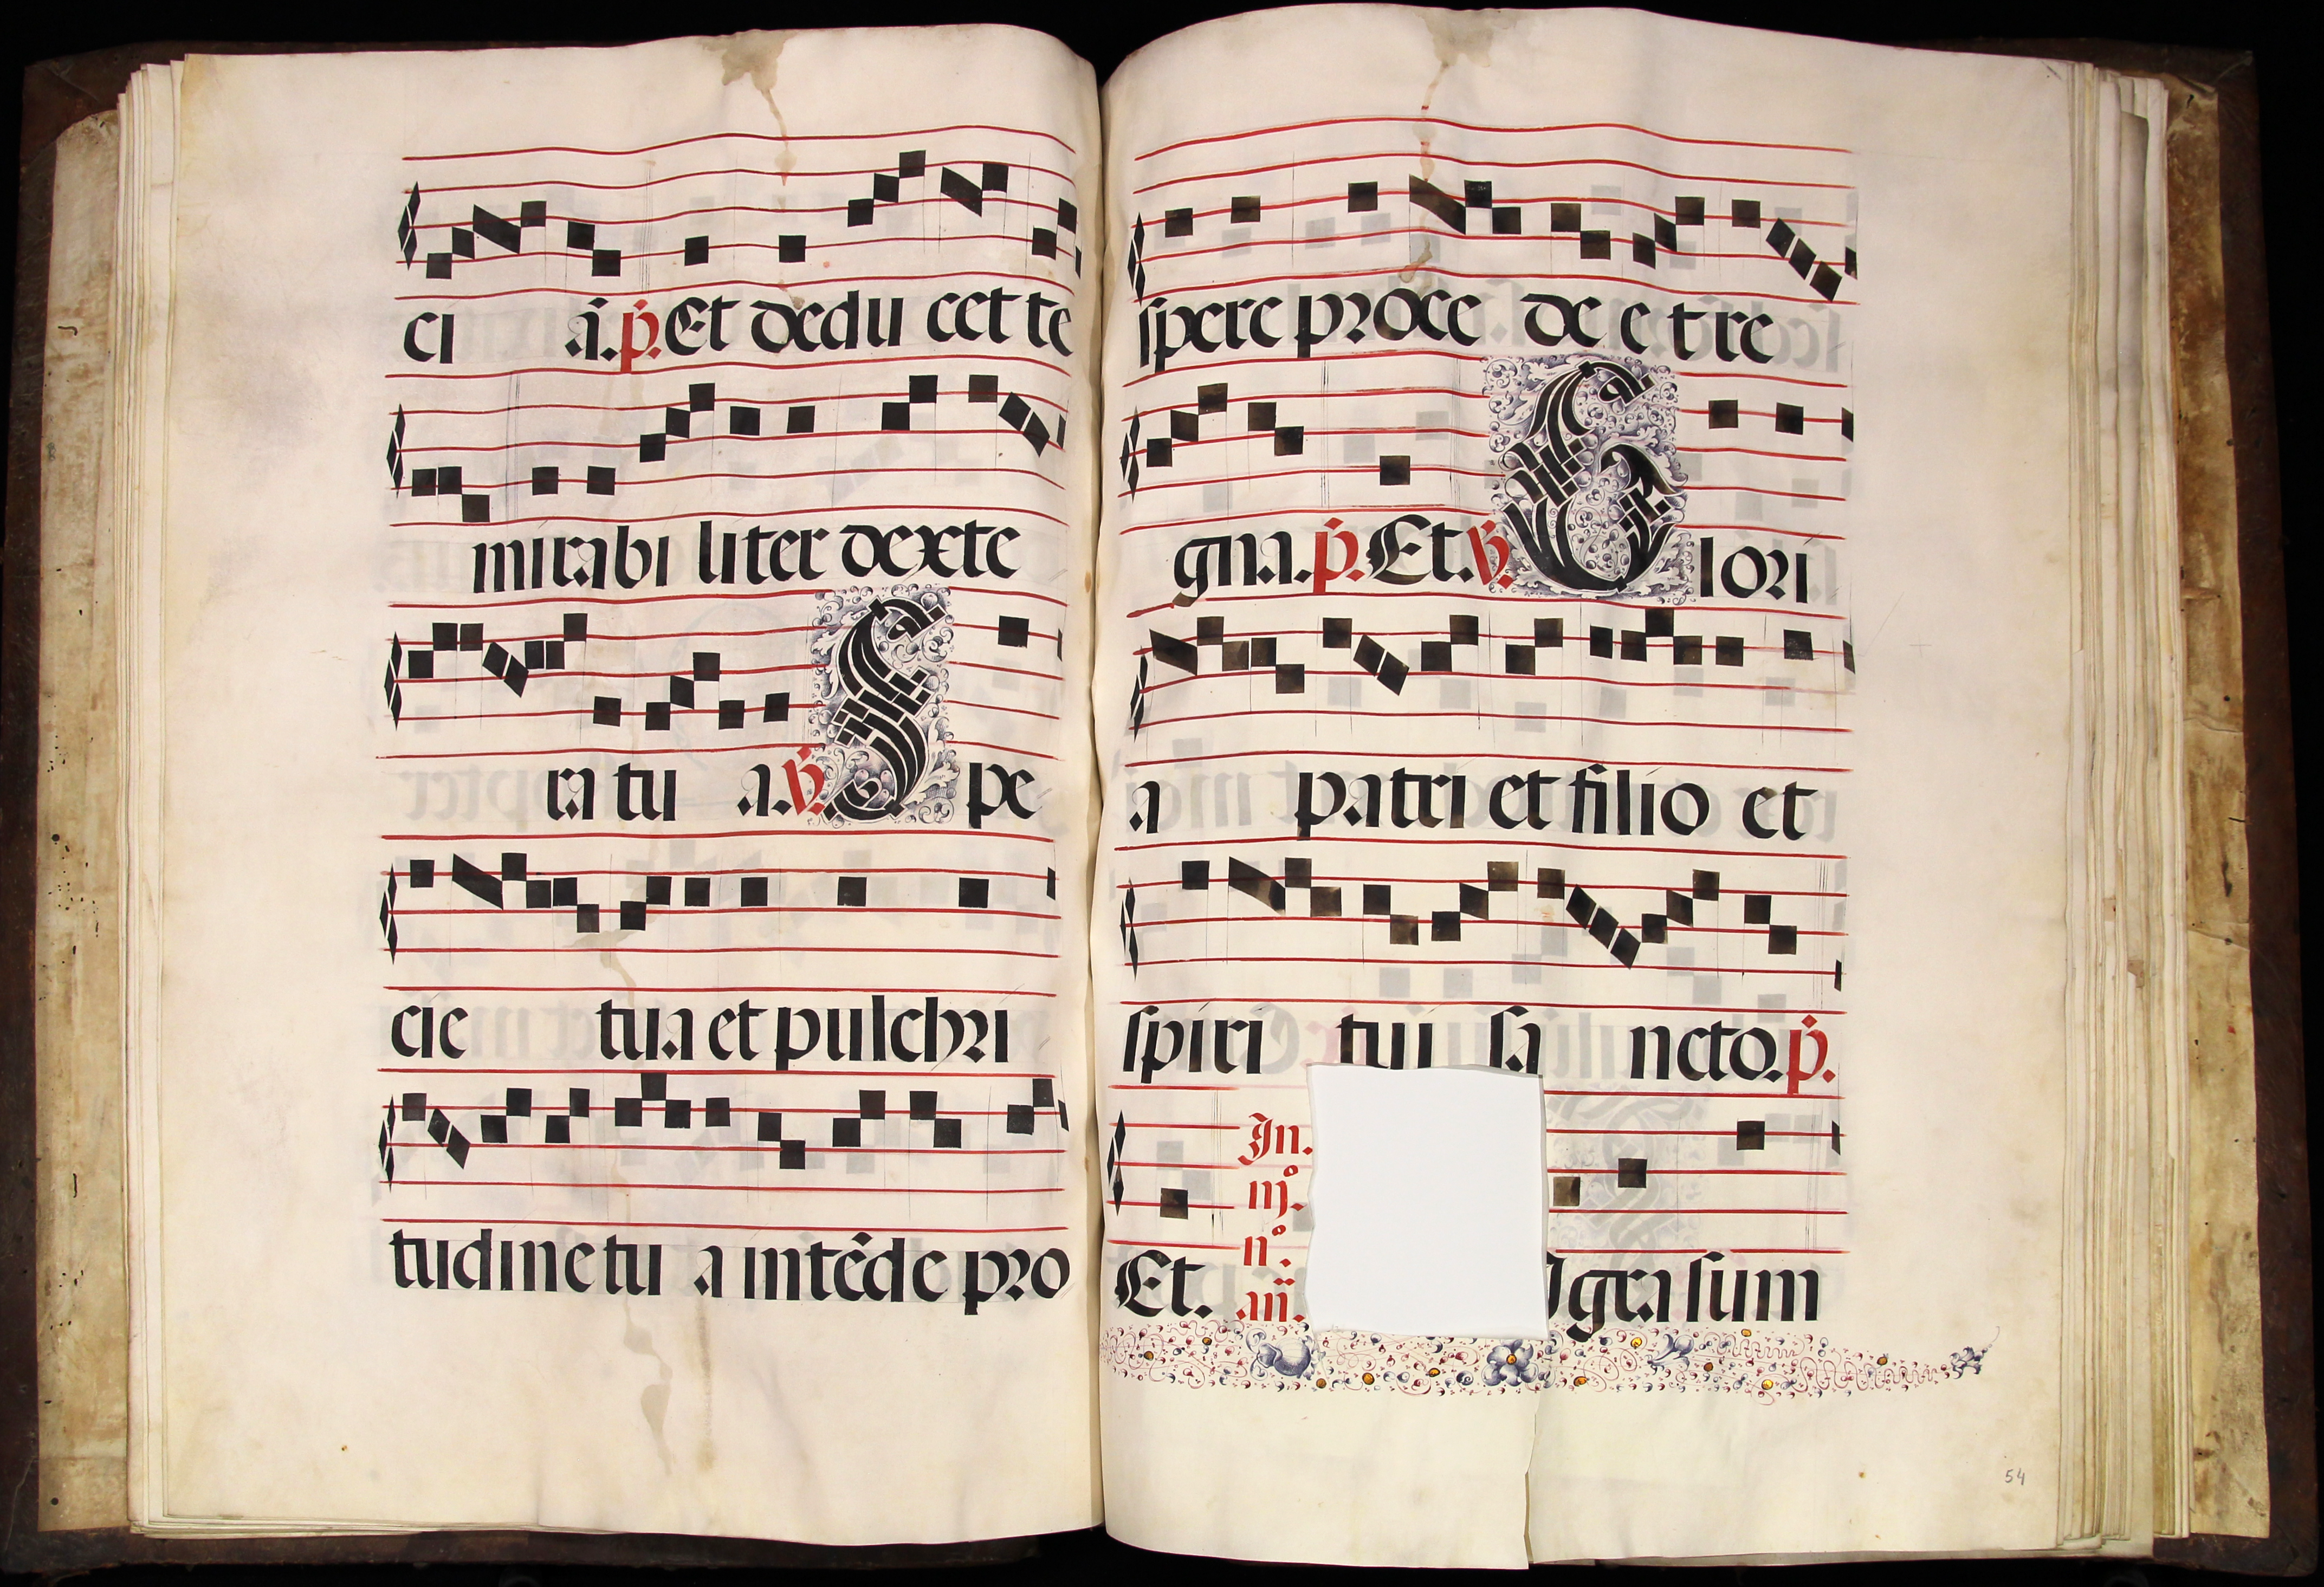 ci ā. p̄. Et dedu cet te
mirabi liter dexte
ra tu a. ℣. Spe
cie tua et pulchri
tudine tu a intēde pro
spere proce de et re
gna. p̄. Et. ℣. Glori
a patri et filio et
spiri tui sa ncto. p̄.
Et. In. iij.° n°. añ. Igra sum
54